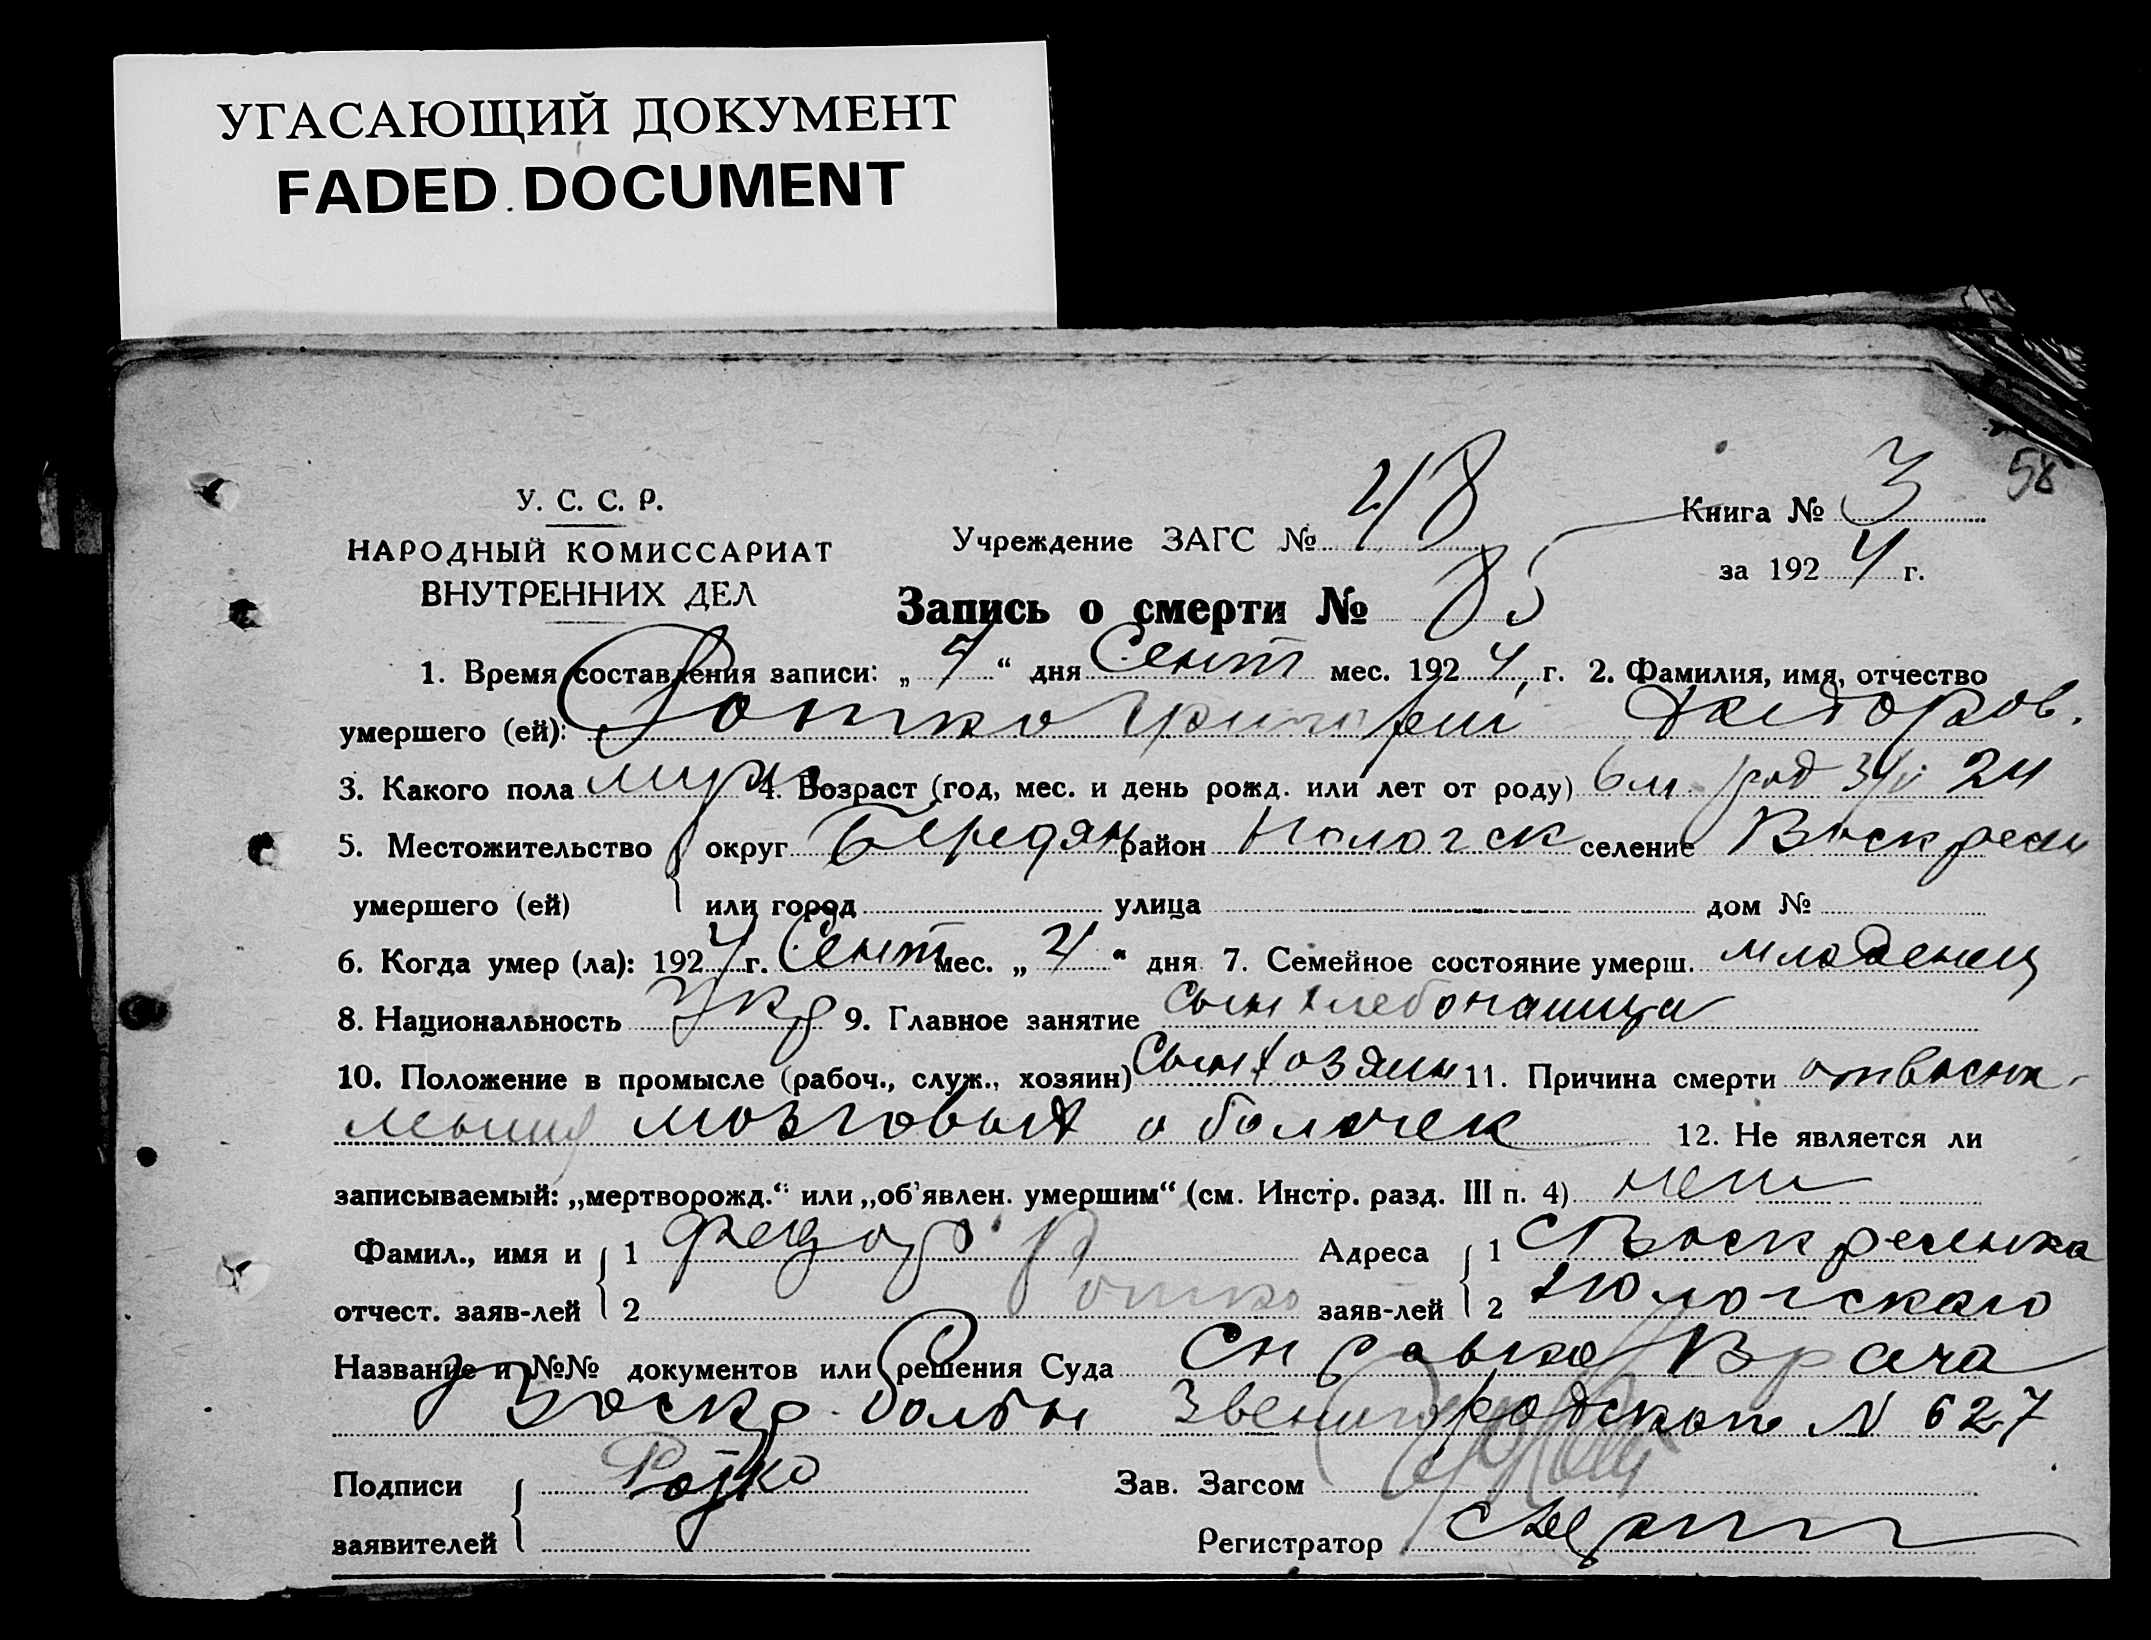 УГАСАЮЩИЙ ДОКУМЕНТ
FADED DOCUMENT
58
У. С. С. Р.
НАРОДНЫЙ КОМИССАРИАТ
ВНУТРЕННИХ ДЕЛ
Учреждение ЗАГС № 48
Книга № 3
за 1924 г.
Запись о смерти № 85
1. Время составления записи: „ 7 “ дня Сент мес. 1924 г. 2. Фамилия, имя, отчество
умершего (ей): Ротко Григорий
3. Какого пола муж 4. Возраст (год, мес. и день рожд. или лет от роду) 6 м. род 24
5. Местожительство округ Бердян район Пологск селение Воскресен
умершего (ей) или город улица дом №
6. Когда умер (ла): 1924 г. Сент мес. „ 4 “ дня 7. Семейное состояние умерш. младенец
8. Национальность Укр 9. Главное занятие сын хлебопашца
10. Положение в промысле (рабоч., служ., хозяин) сын хозяин 11. Причина смерти от воспа-
ления мозговых оболочек 12. Не является ли
записываемый: „мертворожд.“ или „об'явлен. умершим“ (см. Инстр. разд. III п. 4) нет
Фамил., имя и 1 Федор Адреса 1 с Воскресенка
отчест. заяв-лей 2 Ротко заяв-лей 2 Пологскаго
Название и №№ документов или решения Суда Справка Врача
Воскр. болбн Звенигородскаго N 627
Подписи Ротко Зав. Загсом
заявителей Регистратор